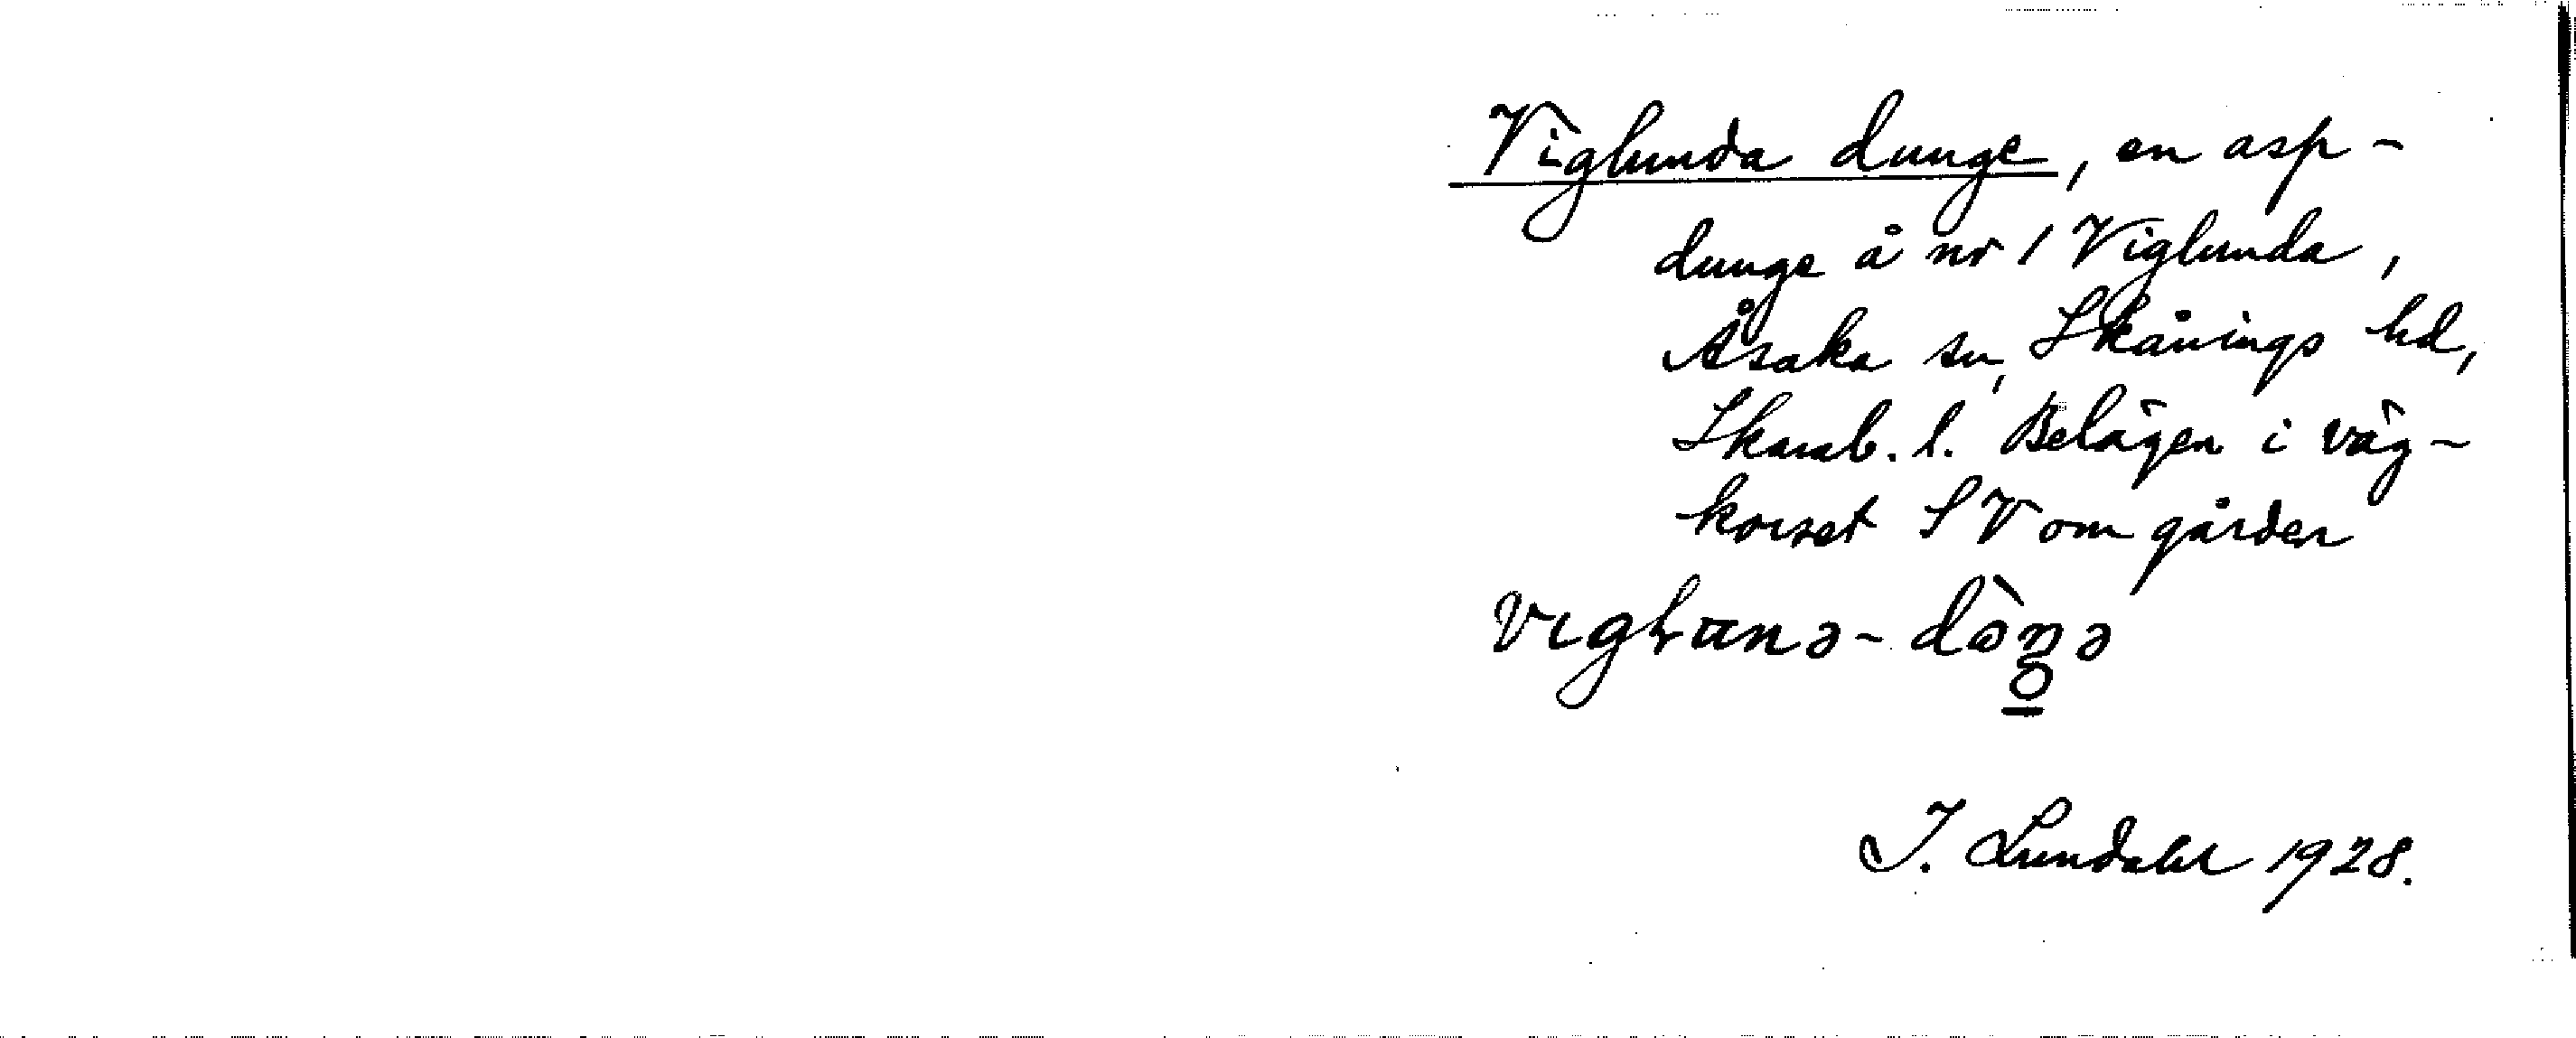 Viglunda dunge, en asp-
dunge å nr 1 Viglunda,
Åsaka sn, Skånings hd,
Skarab. l. Belägen i väg-
korset SV om gården
J. Lundahl 1928.